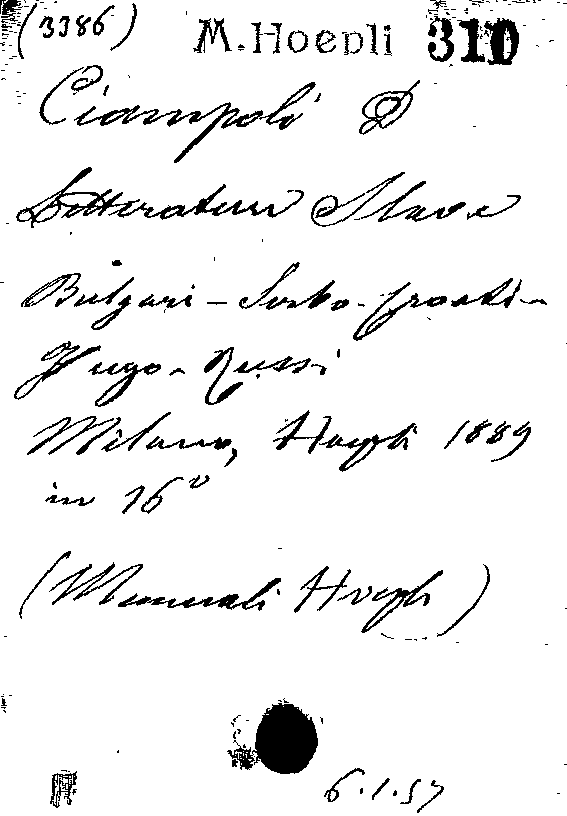 (3386) M. Hoepli 310
Ciampoli D
Letterature Slave
Bulgari - Serbo-Croati -
Jugo-Russi
Milano, Hoepli 1889
in 16°
(Manuali Hoepli)
6.1.57